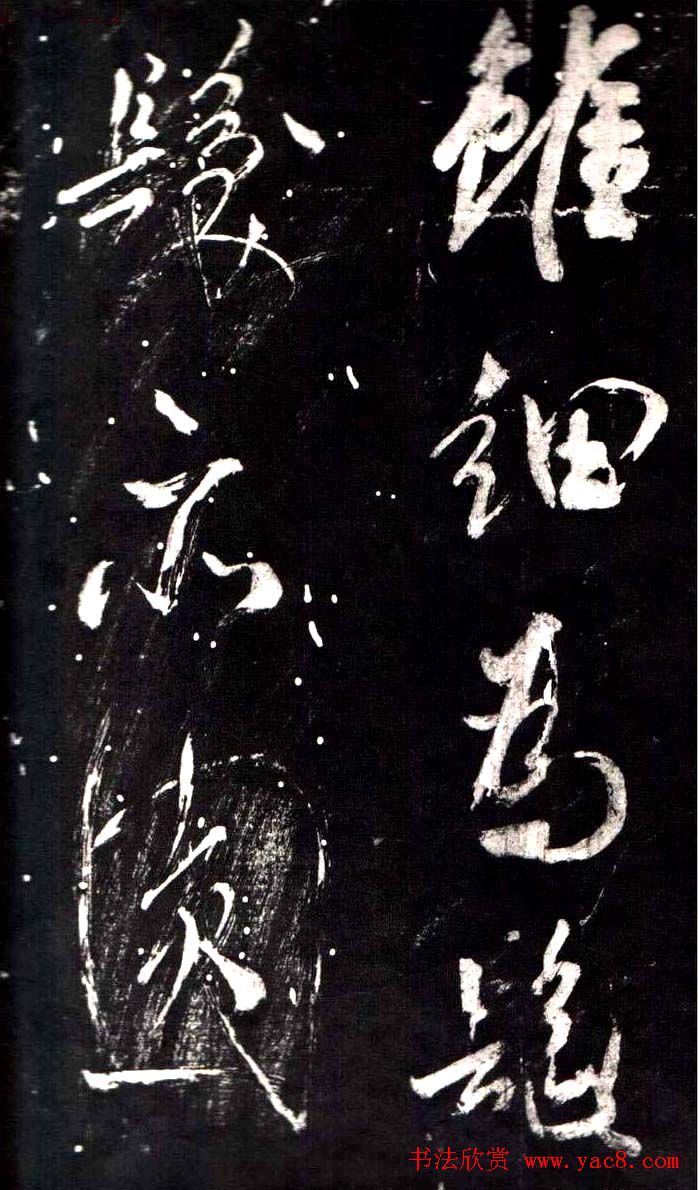 雖細為髭
髮亦圓
书法欣赏 www.yac8.com